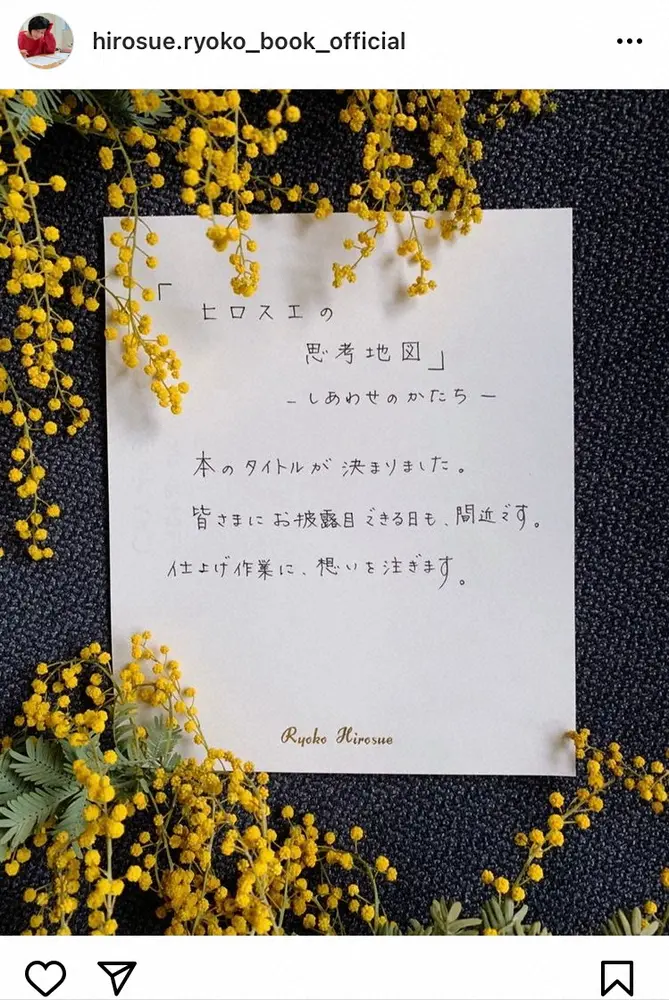 hirosue.ryoko_book_official
「ヒロスエの
思考地図」
-しあわせのかたち-
本のタイトルが決まりました。
皆さまにお披露目できる日も、間近です。
仕上げ作業に、想いを注ぎます。
Ryoko Hirosue